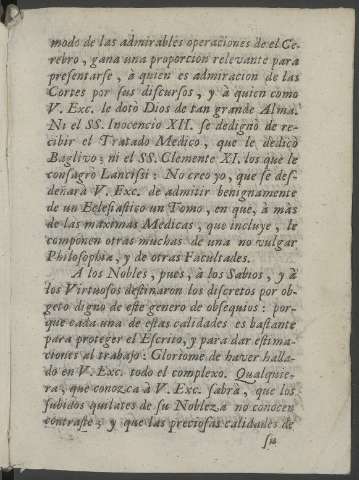 modo de las admirables operaciones de el Ce-
rebro, gana una proporcion relevante para
presentarse, à quien es admiracion de las
Cortes por sus discursos, y à quien como
V. Exc. le dotò Dios de tan grande Alma.
Ni el SS. Inocencio XII. se dedignò de re-
cibir el Tratado Medico, que le dedicò
Baglivo; ni el SS. Clemente XI. los que le
consagrò Lancissi: No creo yo, que se des-
deñarà V. Exc. de admitir benignamente
de un Eclesiastico un Tomo, en que, à màs
de las maximas Medicas, que incluye, le
componen otras muchas de una no vulgar
Philosophia, y de otras Facultades.
A los Nobles, pues, à los Sabios, y à
los Virtuosos destinaron los discretos por ob-
geto digno de este genero de obsequios: por-
que cada una de estas calidades es bastante
para proteger el Escrito, y para dar estima-
ciones al trabajo: Gloriome de haver halla-
do en V. Exc. todo el complexo. Qualquie-
ra, que conozca à V. Exc. sabrà, que los
subidos quilates de su Nobleza no conocen
contraste; y que las preciosas calidades de
su